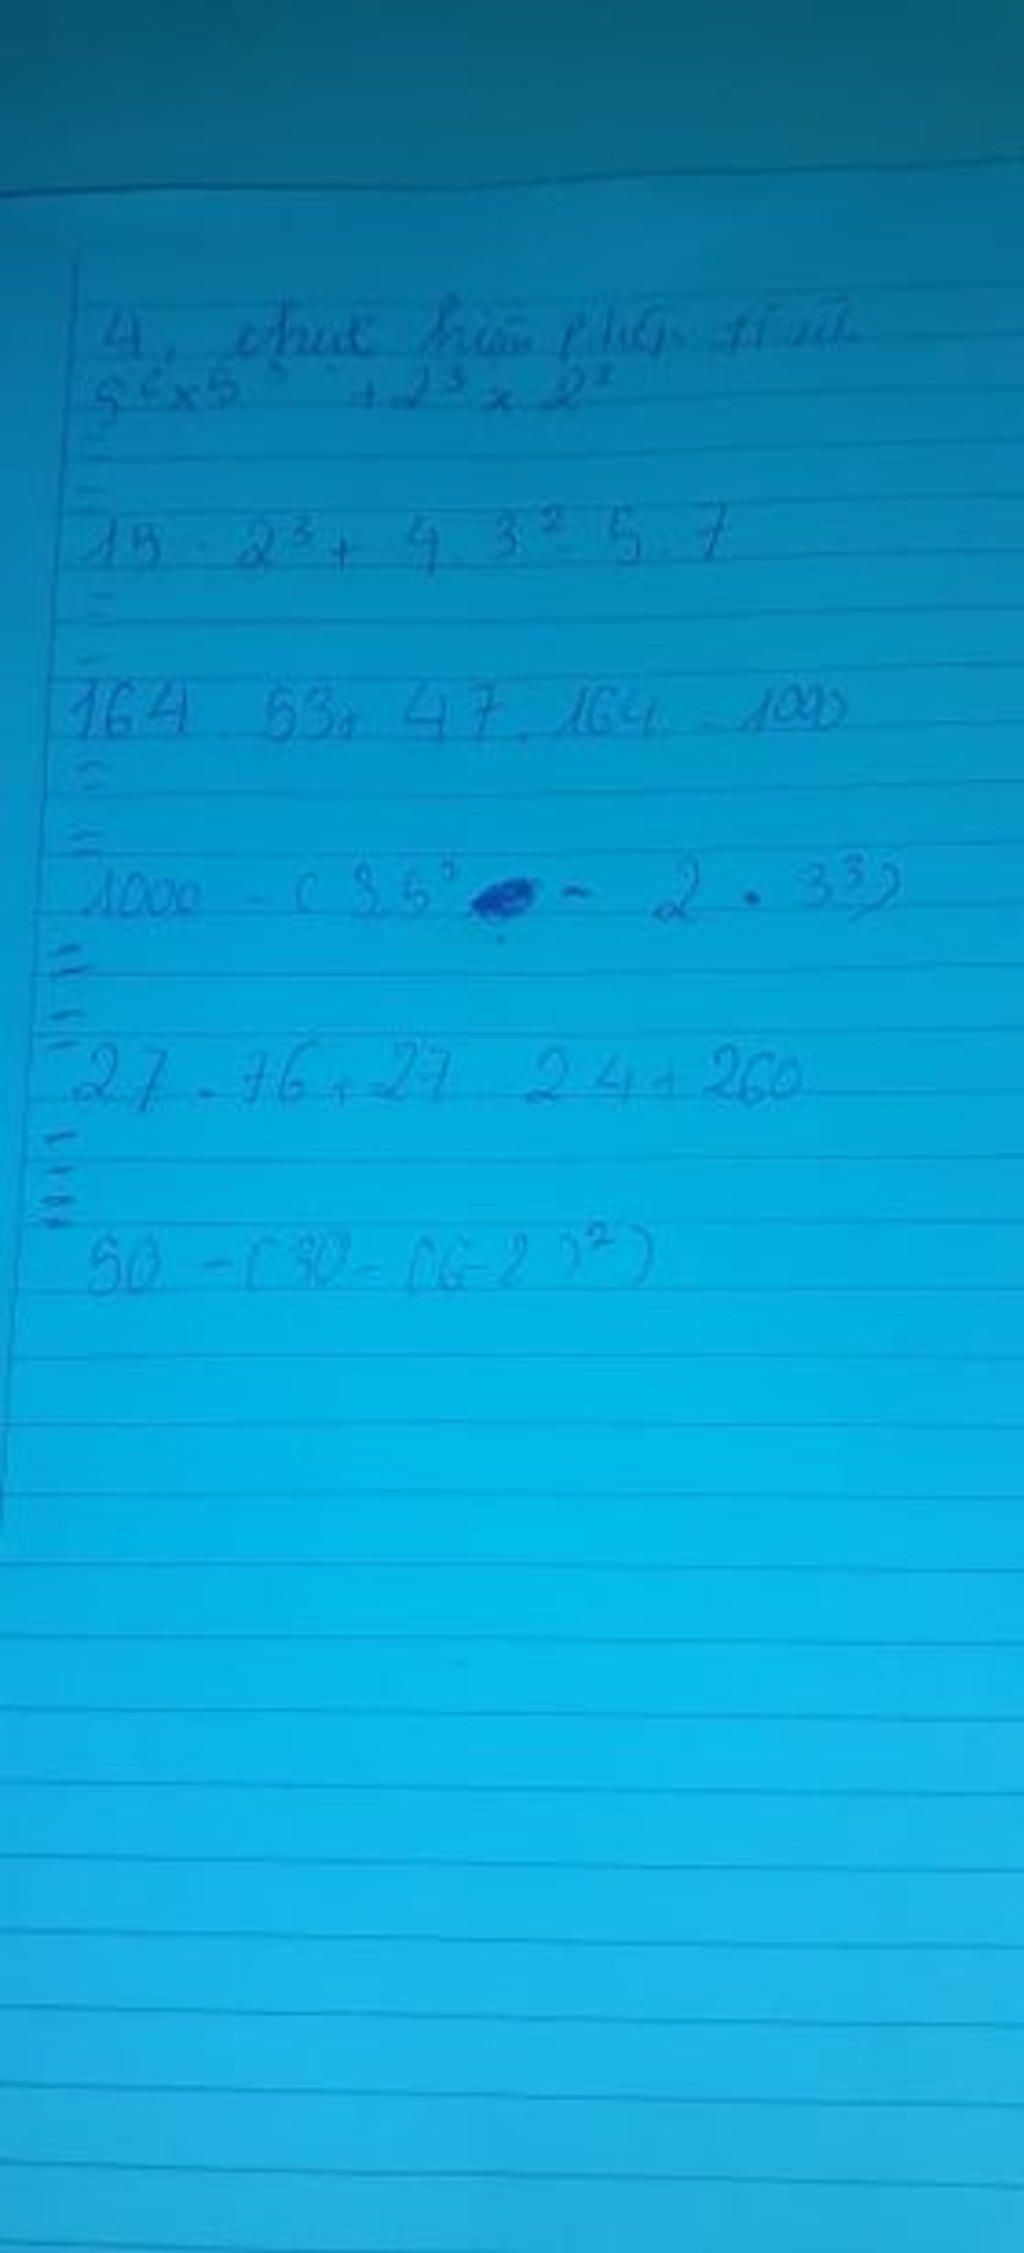 4. thực hiện phép tính
5⁶ x 5³ + 2³ x 2²
=
15 . 2³ + 4 . 3² - 5 . 7
=
=
164 . 53 + 47 . 164 - 1000
=
=
1000 - ( 3.5² - 2 . 3³)
=
=
27 . 76 + 27 24 + 260
=
=
50 - (30 - (6-2)²)